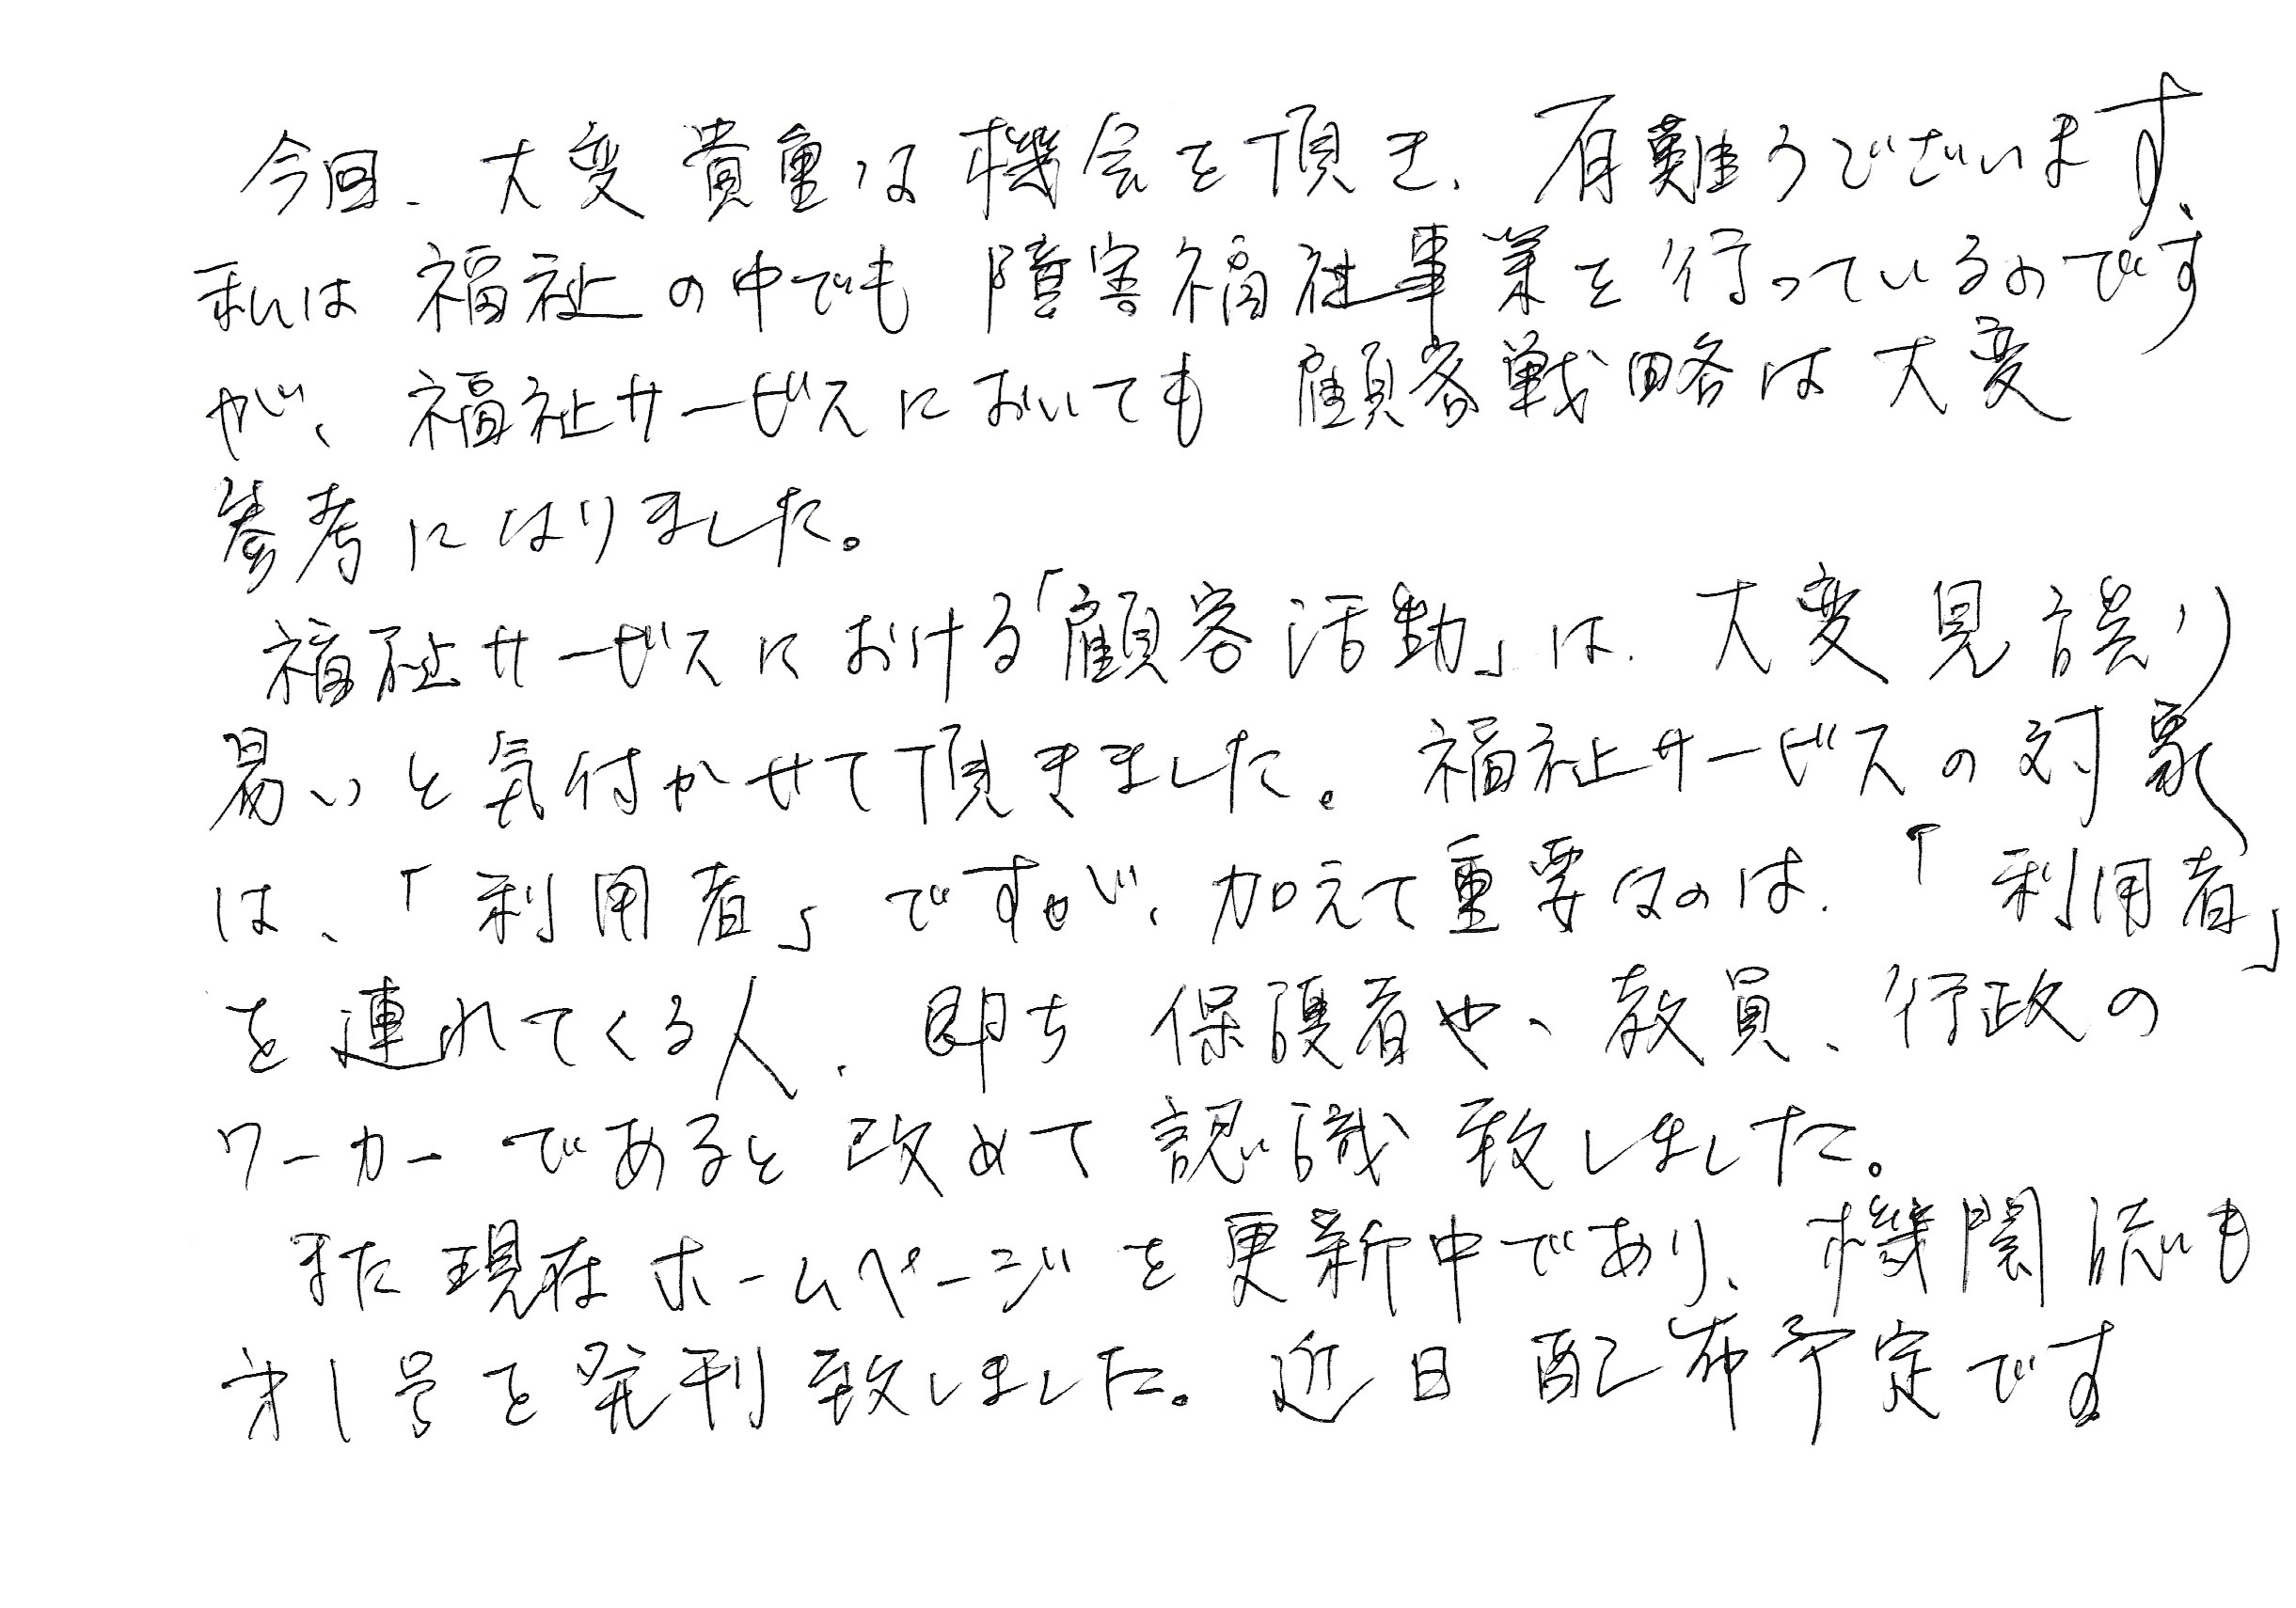 今回、大変貴重な機会を頂き、有難うございます。
私は福祉の中でも障害福祉事業を行っているのです
が、福祉サービスにおいても顧客戦略は大変
参考になりました。
福祉サービスにおける「顧客活動」は、大変見誤り
易いと気付かせて頂きました。福祉サービスの対象
は、「利用者」ですが、加えて重要なのは、「利用者」
を連れてくる人、即ち保護者や、教員、行政の
ワーカーであると改めて認識致しました。
また現在ホームページを更新中であり、機関誌も
才1号を発刊致しました。近日配布予定です